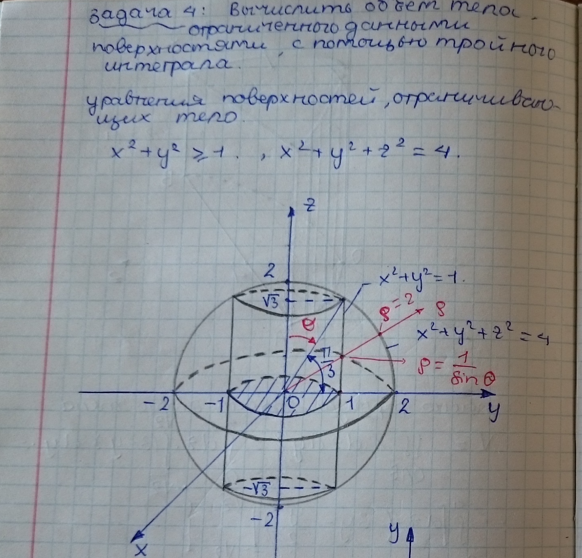 Задача 4: Вычислить объем тела,
ограниченного данными
поверхностями, с помощью тройного
интеграла.
уравнения поверхностей, ограничиваю-
щих тело.
x² + y² ≥ 1. , x² + y² + z² = 4.
z
2
x² + y² = 1.
√3
θ
ρ = 2
ρ
x² + y² + z² = 4
π/3
ρ = 1/sin θ
-2
-1
0
1
2
y
-√3
-2
x
y